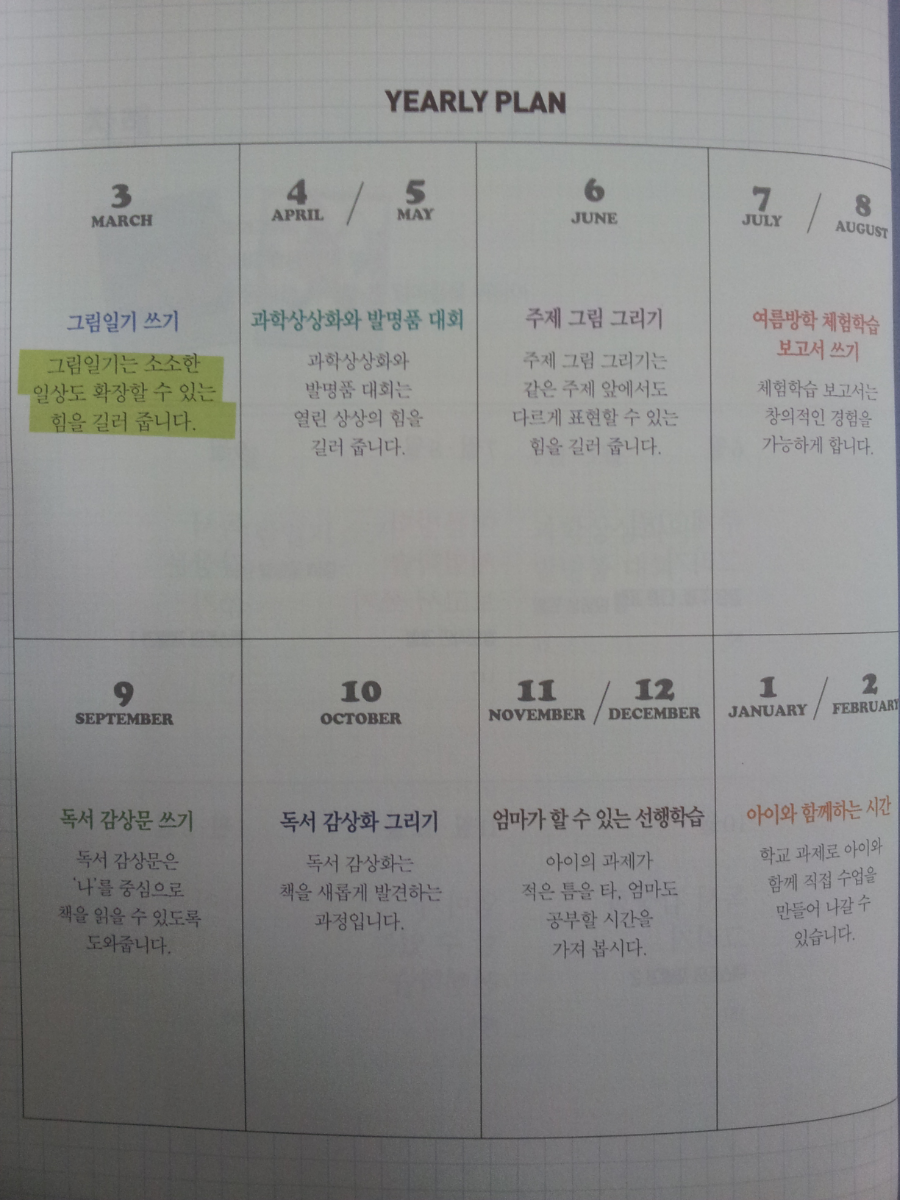 YEARLY PLAN
3
MARCH
그림일기 쓰기
그림일기는 소소한
일상도 확장할 수 있는
힘을 길러 줍니다.
4 / 5
APRIL MAY
과학상상화와 발명품 대회
과학상상화와
발명품 대회는
열린 상상의 힘을
길러 줍니다.
6
JUNE
주제 그림 그리기
주제 그림 그리기는
같은 주제 앞에서도
다르게 표현할 수 있는
힘을 길러 줍니다.
7 / 8
JULY AUGUST
여름방학 체험학습
보고서 쓰기
체험학습 보고서는
창의적인 경험을
가능하게 합니다.
9
SEPTEMBER
독서 감상문 쓰기
독서 감상문은
‘나’를 중심으로
책을 읽을 수 있도록
도와줍니다.
10
OCTOBER
독서 감상화 그리기
독서 감상화는
책을 새롭게 발견하는
과정입니다.
11 / 12
NOVEMBER DECEMBER
엄마가 할 수 있는 선행학습
아이의 과제가
적은 틈을 타, 엄마도
공부할 시간을
가져 봅시다.
1 / 2
JANUARY FEBRUARY
아이와 함께하는 시간
학교 과제로 아이와
함께 직접 수업을
만들어 나갈 수
있습니다.